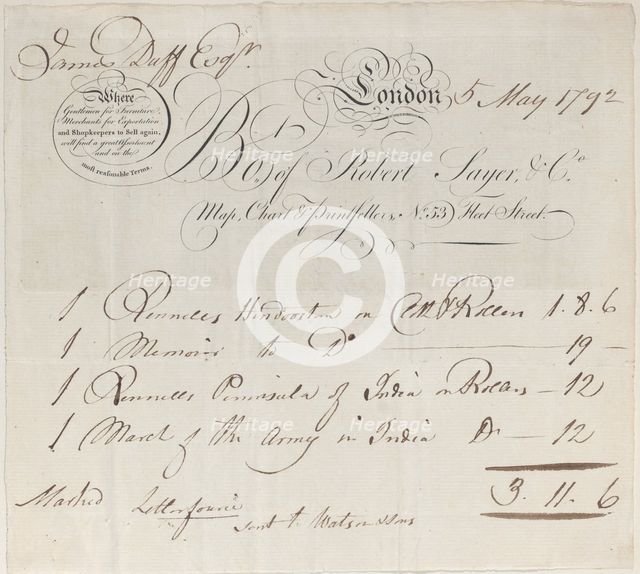 James Duff Esqr.
London 5 May 1792
Where
Gentlemen for Furniture,
Merchants for Exportation
and Shopkeepers to Sell again,
will find a great Assortment
and on the
most reasonable Terms.
Bo. of Robert Sayer, & Co.
Map, Chart & Printsellers, No. 53 Fleet Street.
1 Rennells Hindoostan on & Rollers 1. 8. 6
1 Memoir to Do 19 –
1 Rennells Peninsula of India on Rollers – 12
1 March of the Army in India Do – 12
3. 11. 6
Marked
sent to Watson & Sons
Heritage
Images